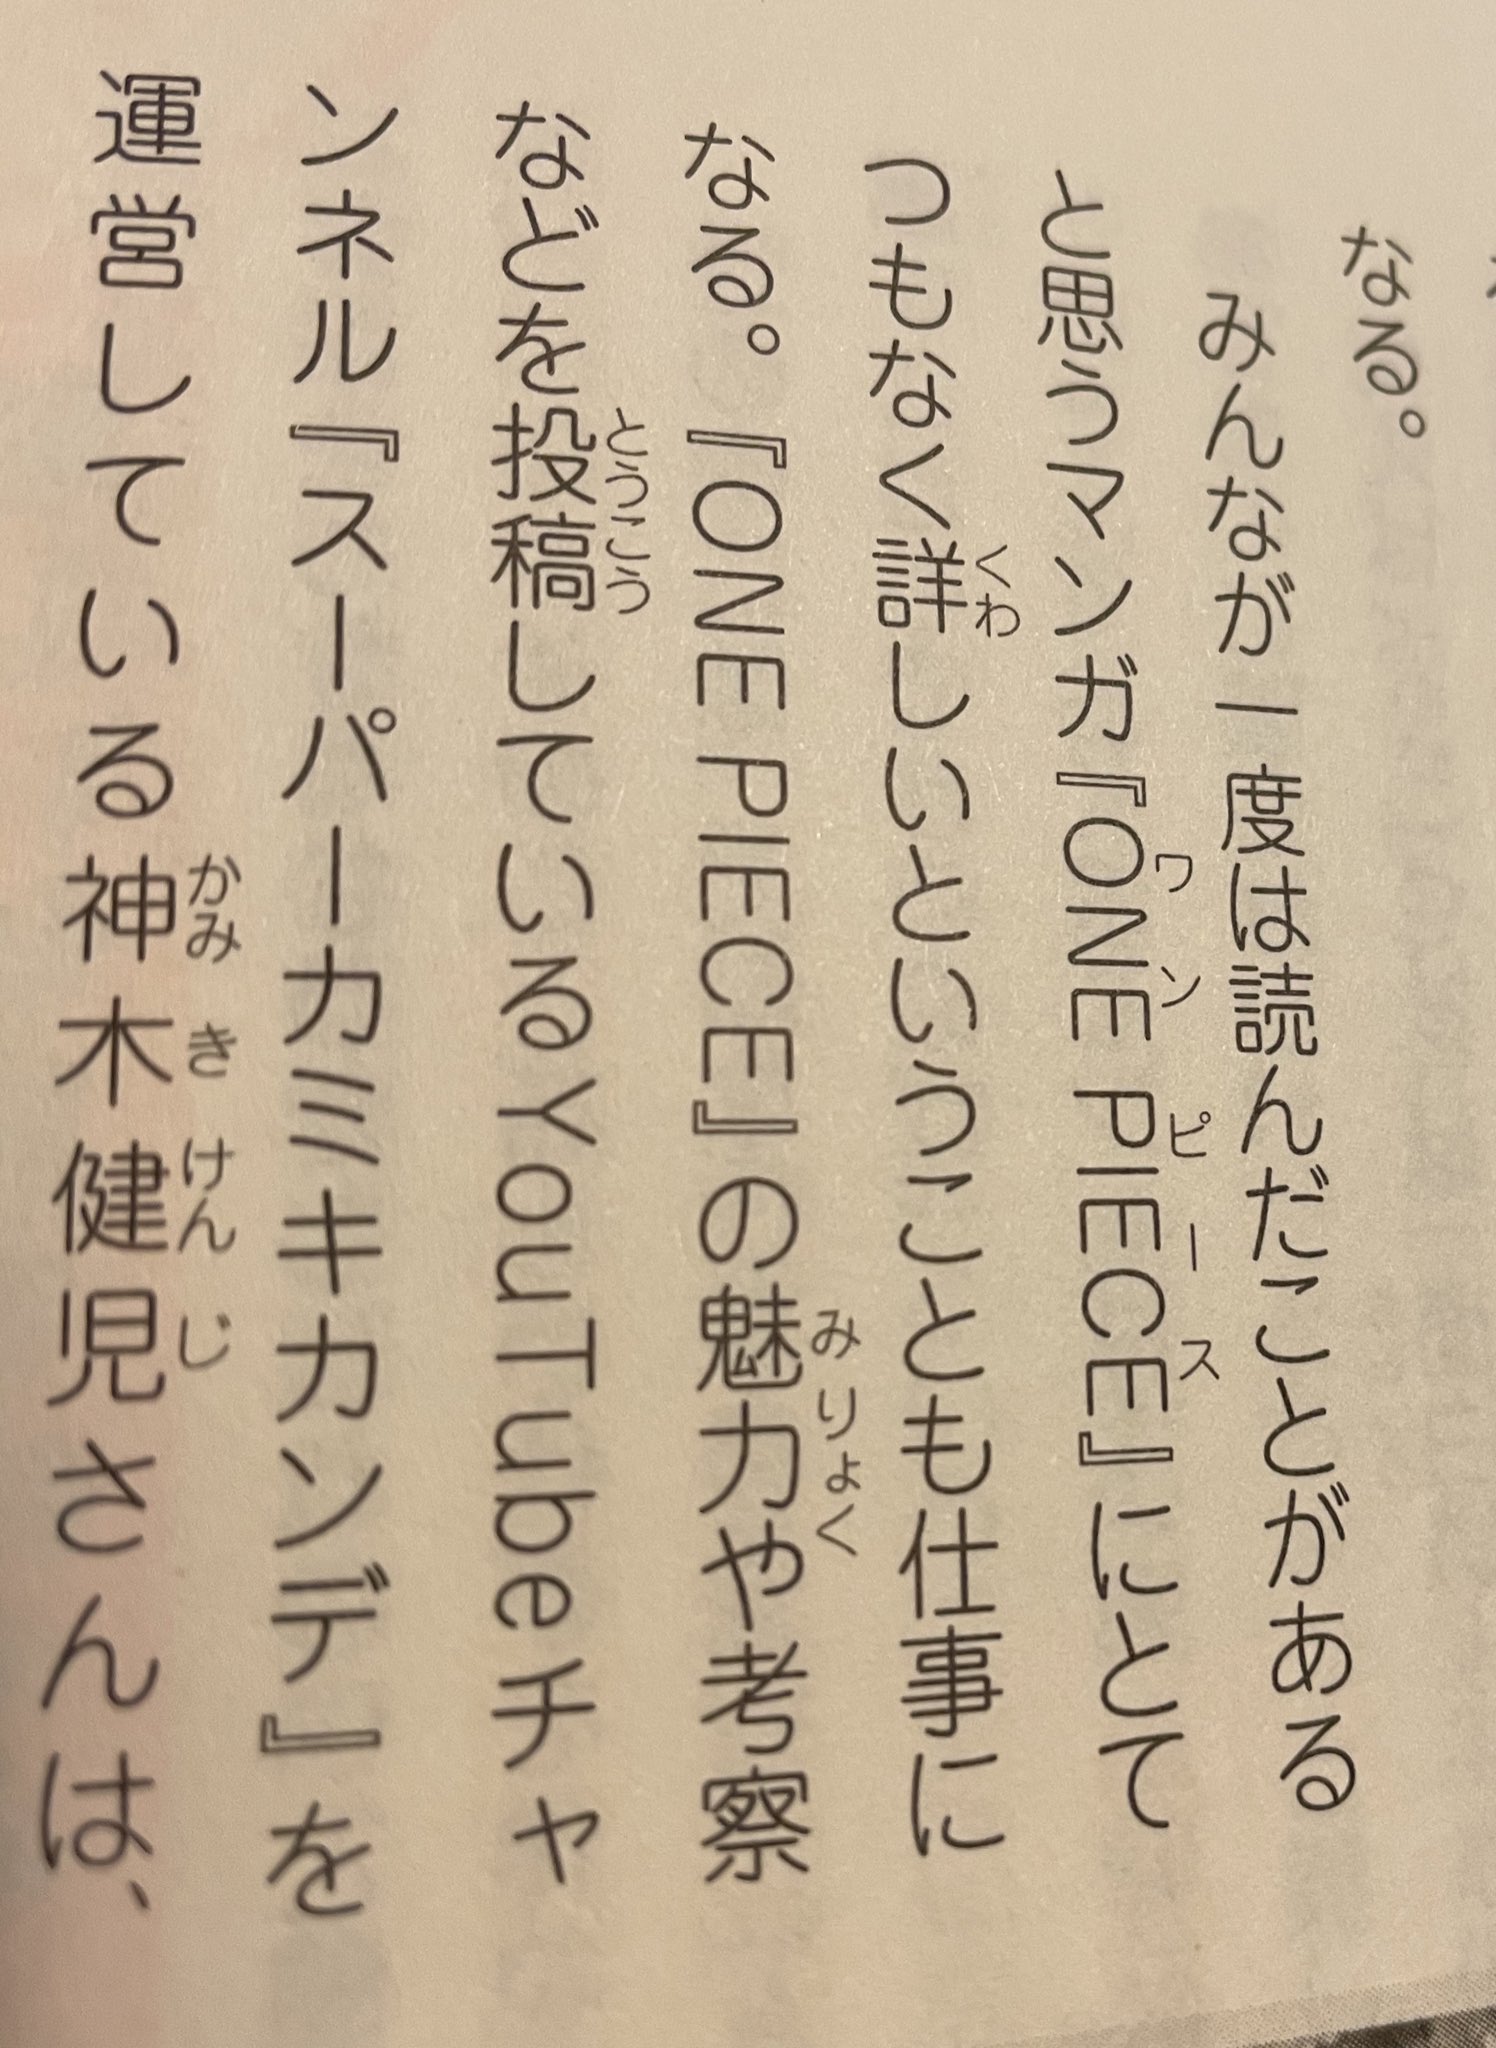 なる。
みんなが一度は読んだことがある
と思うマンガ『ONE PIECE』にとて
つもなく詳しいということも仕事に
なる。『ONE PIECE』の魅力や考察
などを投稿しているYouTubeチャ
ンネル『スーパーカミキカンデ』を
運営している神木健児さんは、